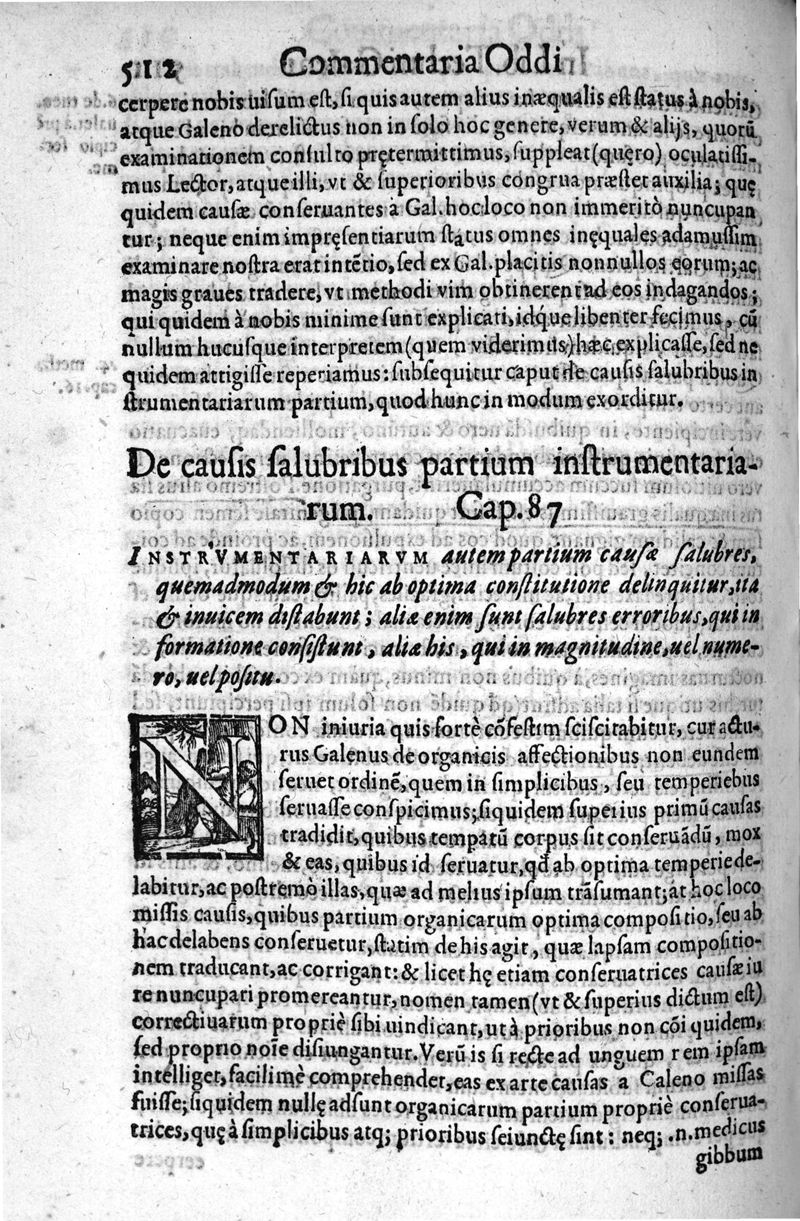 512 Commentaria Oddi
cerpere nobis uisum est, si quis autem alius inæqualis est status à nobis,
atque Galeno derelictus non in solo hoc genere, verum & alijs, quorũ
examinationem consulto prętermittimus, suppleat (quęro) oculatissi-
mus Lector, atque illi, vt & superioribus congrua præstet auxilia; quę
quidem causæ conseruantes à Gal. hoc loco non immeritò nuncupan
tur; neque enim impręsentiarum status omnes inęquales adamussim
examinare nostra erat intẽtio, sed ex Gal. placitis nonnullos eorum; ac
magis graues tradere, vt methodi vim obtinerent ad eos indagandos;
qui quidem à nobis minime sunt explicati, idque libenter fecimus, cũ
nullum hucusque interpretem (quem viderimus) hæc explicasse, sed ne
quidem attigisse reperiamus: subsequitur caput de causis salubribus in
strumentariarum partium, quod hunc in modum exorditur.
De causis salubribus partium instrumentaria-
rum. Cap. 87
INSTRVMENTARIARVM autem partium causæ salubres,
quemadmodum & hic ab optima constitutione delinquitur, ita
& inuicem distabunt; aliæ enim sunt salubres erroribus, qui in
formatione consistunt, aliæ his, qui in magnitudine, uel nume-
ro, uel positu.
NON iniuria quis fortè cõfestim sciscitabitur, cur actu-
rus Galenus de organicis affectionibus non eundem
seruet ordinẽ, quem in simplicibus, seu temperiebus
seruasse conspicimus; siquidem superius primũ causas
tradidit, quibus tempatũ corpus sit conseruãdũ, mox
& eas, quibus id seruatur, qd ab optima temperie de-
labitur, ac postremò illas, quæ ad melius ipsum trãsumant; at hoc loco
missis causis, quibus partium organicarum optima compositio, seu ab
hac delabens conseruetur, statim de his agit, quæ lapsam compositio-
nem traducant, ac corrigant: & licet hę etiam conseruatrices causæ iu
re nuncupari promereantur, nomen tamen (vt & superius dictum est)
correctiuarum propriè sibi uindicant, ut à prioribus non cõi quidem,
sed proprio noĩe disiungantur. Verũ is si recte ad unguem rem ipsam
intelliget, facilimè comprehendet, eas ex arte causas a Caleno missas
fuisse; siquidem nullę adsunt organicarum partium propriè conserua-
trices, quę à simplicibus atq; prioribus seiunctę sint: neq; .n. medicus
gibbum